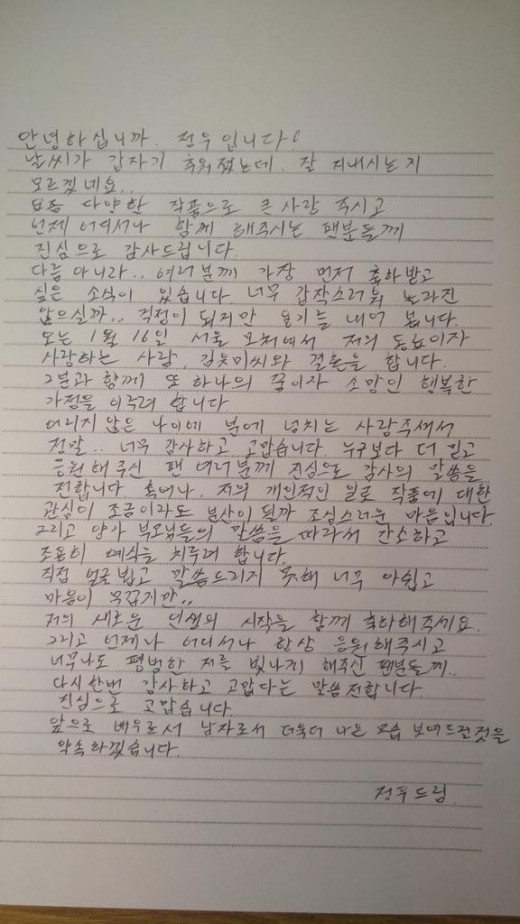 안녕하십니까. 정우입니다!
날씨가 갑자기 추워졌는데. 잘 지내시는지
모르겠네요..
요즘 다양한 작품으로 큰 사랑 주시고
언제 어디서나 함께 해주시는 팬분들께
진심으로 감사드립니다.
다름 아니라.. 여러분께 가장 먼저 축하받고
싶은 소식이 있습니다 너무 갑작스러워 놀라진
않으실까.. 걱정이 되지만 용기를 내어 봅니다.
오는 1월 16일 서울 모처에서 저의 동료이자
사랑하는 사람, 김유미씨와 결혼을 합니다.
그분과 함께 또 하나의 꿈이자 소망인 행복한
가정을 이루려 합니다.
어리지 않은 나이에 분에 넘치는 사랑주셔서
정말.. 너무 감사하고 고맙습니다. 누구보다 더 믿고
응원해주신 팬 여러분께 진심으로 감사의 말씀을
전합니다 혹여나, 저의 개인적인 일로 작품에 대한
관심이 조금이라도 분산이 될까 조심스러운 마음입니다
그리고 양가 부모님들의 말씀을 따라서 간소하고
조용히 예식을 치루려 합니다.
직접 얼굴뵙고 말씀드리지 못해 너무 아쉽고
마음이 무겁지만..
저의 새로운 인생의 시작을 함께 축하해주세요.
그리고 언제나 어디서나 항상 응원해주시고
너무나도 평범한 저를 빛나게 해주신 팬분들께..
다시한번 감사하고 고맙다는 말씀전합니다
진심으로 고맙습니다
앞으로 배우로서 남자로서 더욱더 나은 모습 보여드릴것을
약속하겠습니다.
정우드림.